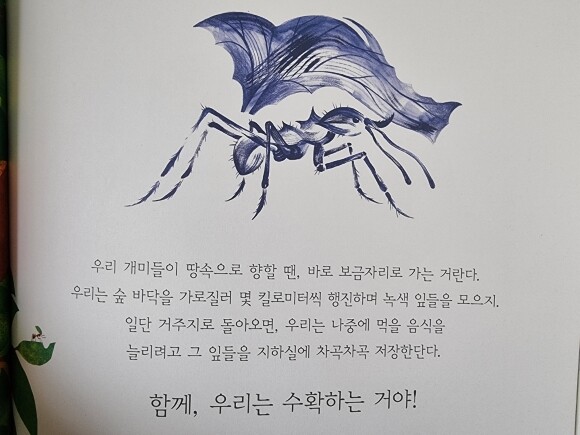 우리 개미들이 땅속으로 향할 땐, 바로 보금자리로 가는 거란다.
우리는 숲 바닥을 가로질러 몇 킬로미터씩 행진하며 녹색 잎들을 모으지.
일단 거주지로 돌아오면, 우리는 나중에 먹을 음식을
늘리려고 그 잎들을 지하실에 차곡차곡 저장한단다.
함께, 우리는 수확하는 거야!